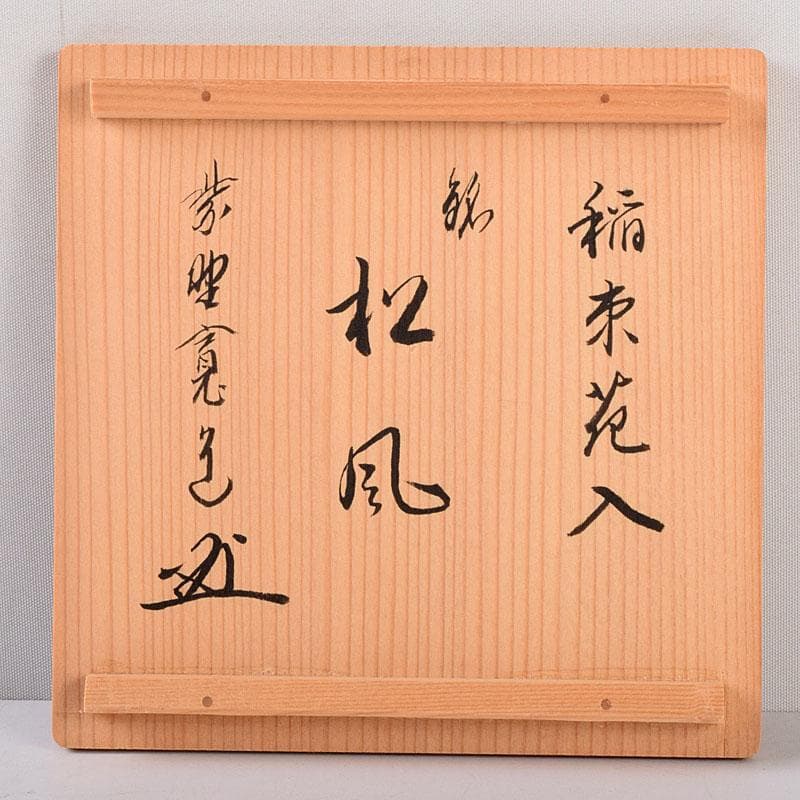 稲束花入
銘
松風
紫野寛道